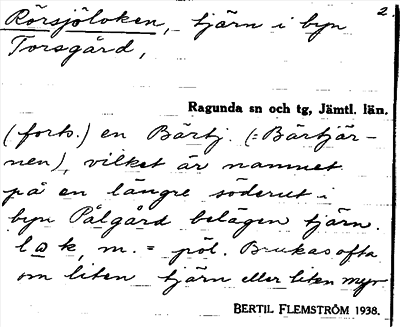 2.
Rörsjöloken, tjärn i byn
Torsgård,
Ragunda sn och tg, Jämtl. län.
(forts.) en Bärtj. (=Bärtjär-
nen), vilket är namnet
på en längre söderut i
byn Pålgård belägen tjärn.
lok, m. = pöl. Brukas ofta
om liten tjärn eller liten myr
BERTIL FLEMSTRÖM 1938.